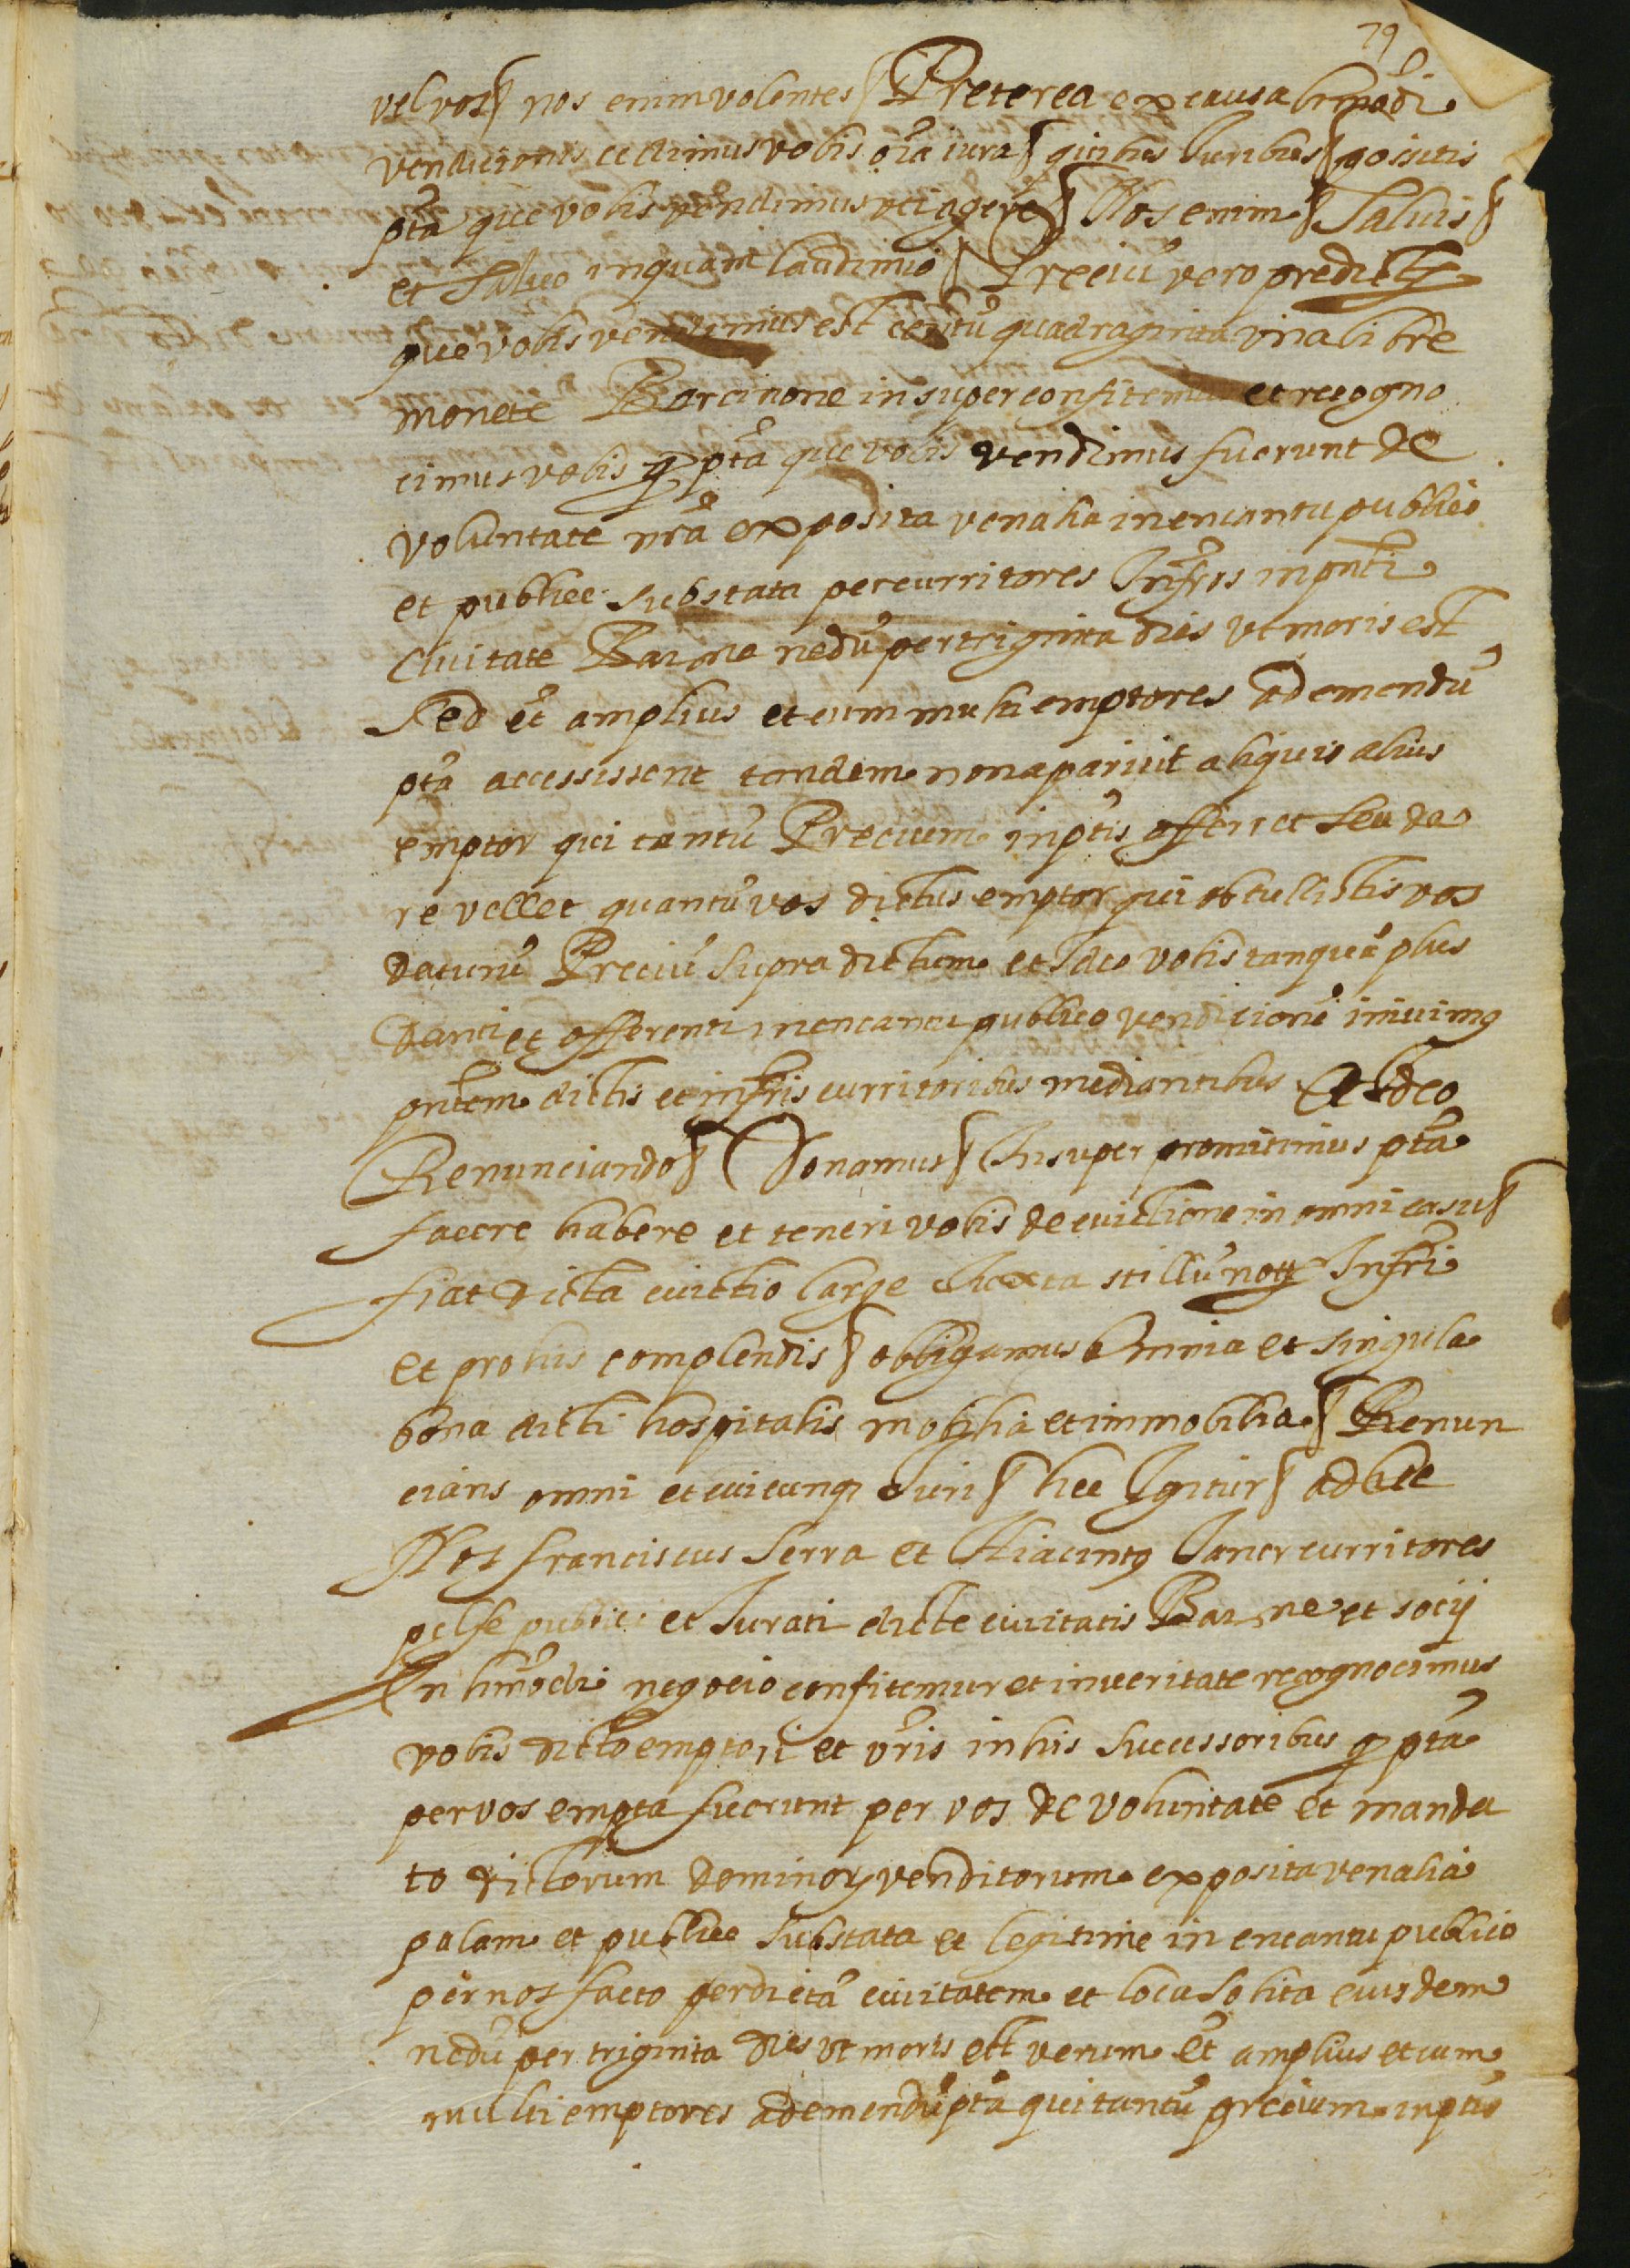 79
vel vos§ nos enim volentes§ Preterea ex causa hmõi
vendicionis cedimus vobis oĩa iura§ quibus Juribus§ possitis
pta que vobis vendimus uti agere§ Nos enim§ Salvis§
et Salvo inquam laudimio§ Preciũ vero predictoꝝ
que vobis vendimus est centũ quadraginta una libre
monete Barcinone insuper confitemur et recogno
cimus vobis ꝙ pta que vobis vendimus fuerunt de
voluntate nrã exposita venalia in encantu publico
et publice Substata per curritores Infros in pnti
Civitate Barne nedũ per triginta dies ut moris est
Sed et̃ amplius et cum multi emptores ad emendũ
pta accessissent tandem non aparuit aliquis alius
emptor qui tantũ Precium in ptis offerret seu da
re vellet quantũ vos dictus emptor qui obtullistis vos
daturũ Preciũ Supra dictum et Ideo vobis tanquã plus
danti et offerenti in encantu publico vendicionẽ inivimꝯ
pntem dictis et infris curritoribus mediantibus Et Ideo
Renunciando§ Donamus§ Insuper promittimus pta
facere habere et teneri vobis de evictione in omni casu§
fiat dicta evictio large Juxta stillũ notꝝ Infri
et pro his complendis§ obligamus Omnia et singula
bona dicti hospitalis mobilia et immobilia§ Renun
cians omni et cuicunqꝫ Juri§ hec Igitur§ ad hec
Nos franciscus Serra et Hiacintꝯ Janer curritores
publici et Jurati dicte civitatis Barne et socij
In hmõdi negocio confitemur et in veritate recognocimus
vobis dicto emptori et vr̃is in his Successoribus ꝙ pta
per vos empta fuerunt per vos de voluntate et manda
to dictorum dominoꝝ venditorum exposita venalia
palam et publice Substata et legitime in encantu publico
per nos facto per dictã civitatem et loca Solita eiusdem
nedũ per triginta dies ut moris est verum et̃ amplius et cum
multi emptores ad emendũ pta qui tantũ precium in ptis